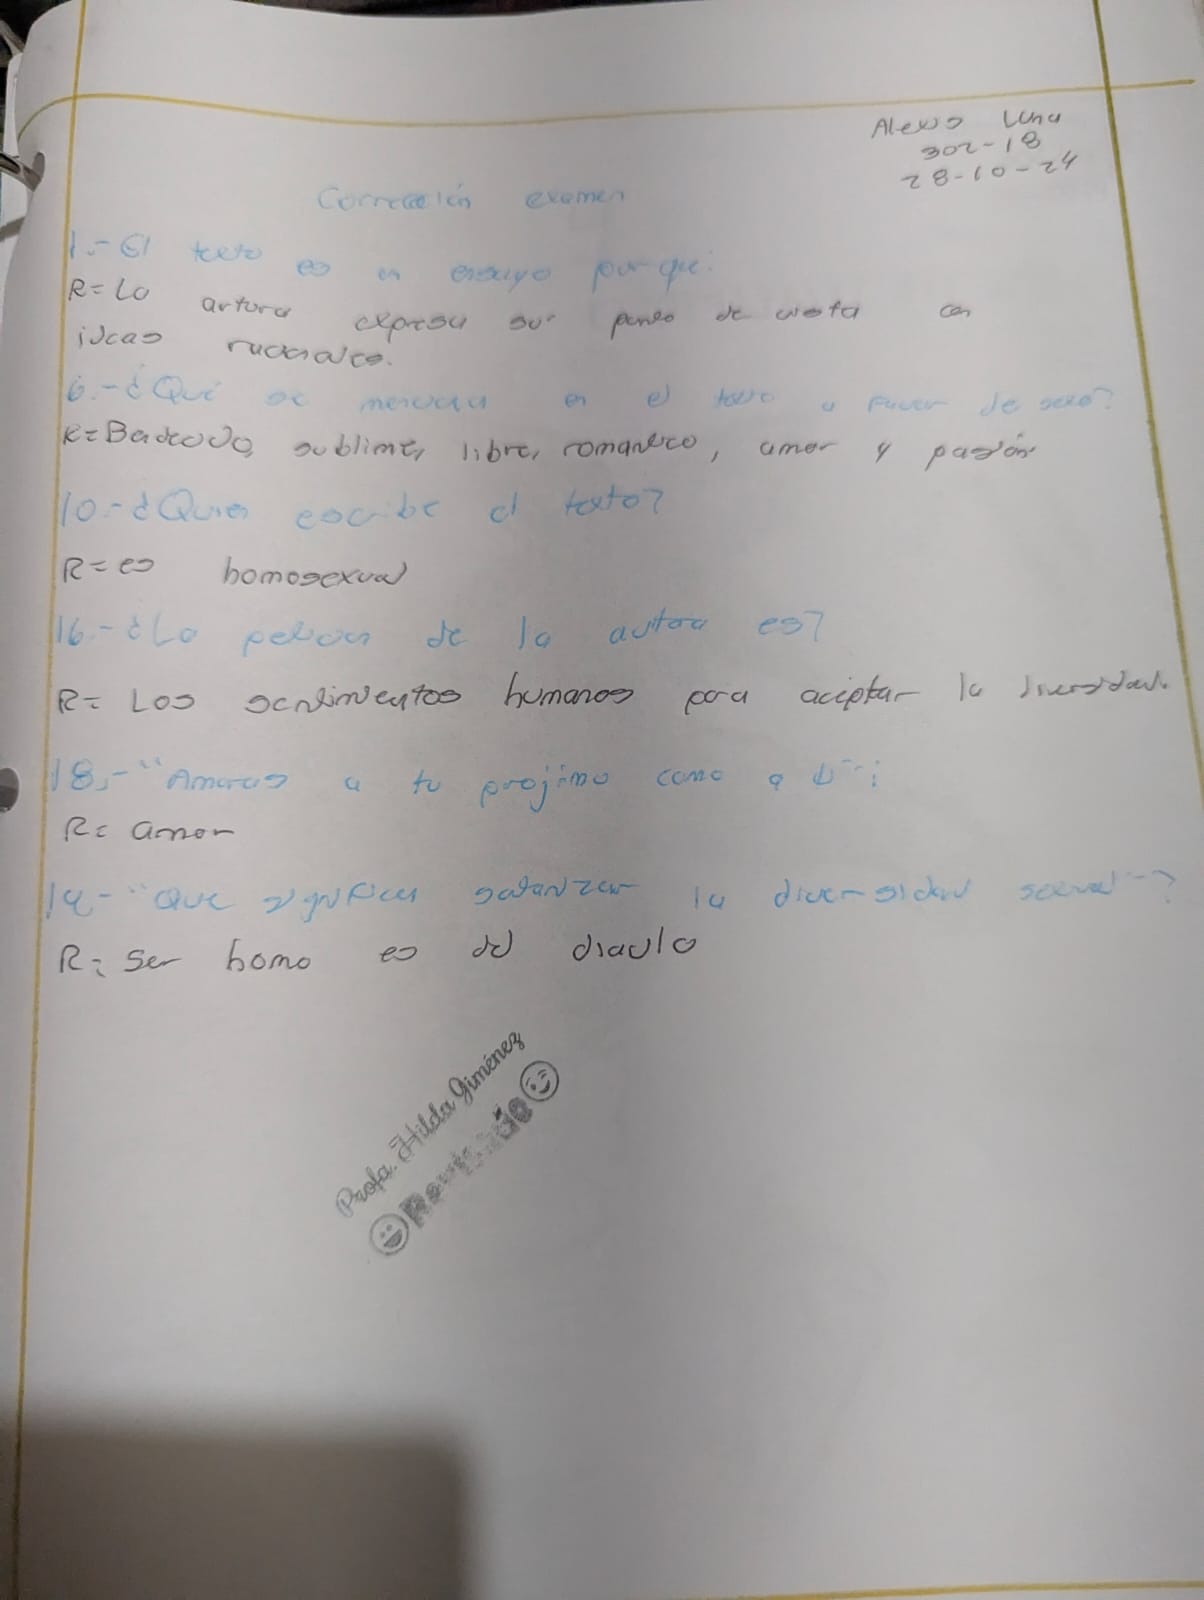 Alexis Luna
302-18
28-10-24
Corrección examen
1.- El texto es un ensayo por que:
R= La autora expresa su punto de vista con
ideas racionales.
6.- ¿Qué se menciona en el texto a favor de sexo?
R= sublime, libre, romantico, amor y pasión
10.- ¿Quien escribe el texto?
R= es homosexual
16.- ¿La peticion de la autora es?
R= Los sentimientos humanos para aceptar la diversidad.
18.- "Amaras a tu projimo como a ti":
R= amor
19.- "Que significa satanizar la diversidad sexual"?
R= Ser homo es del diavlo
Profa. Hilda Giménez
Revisado